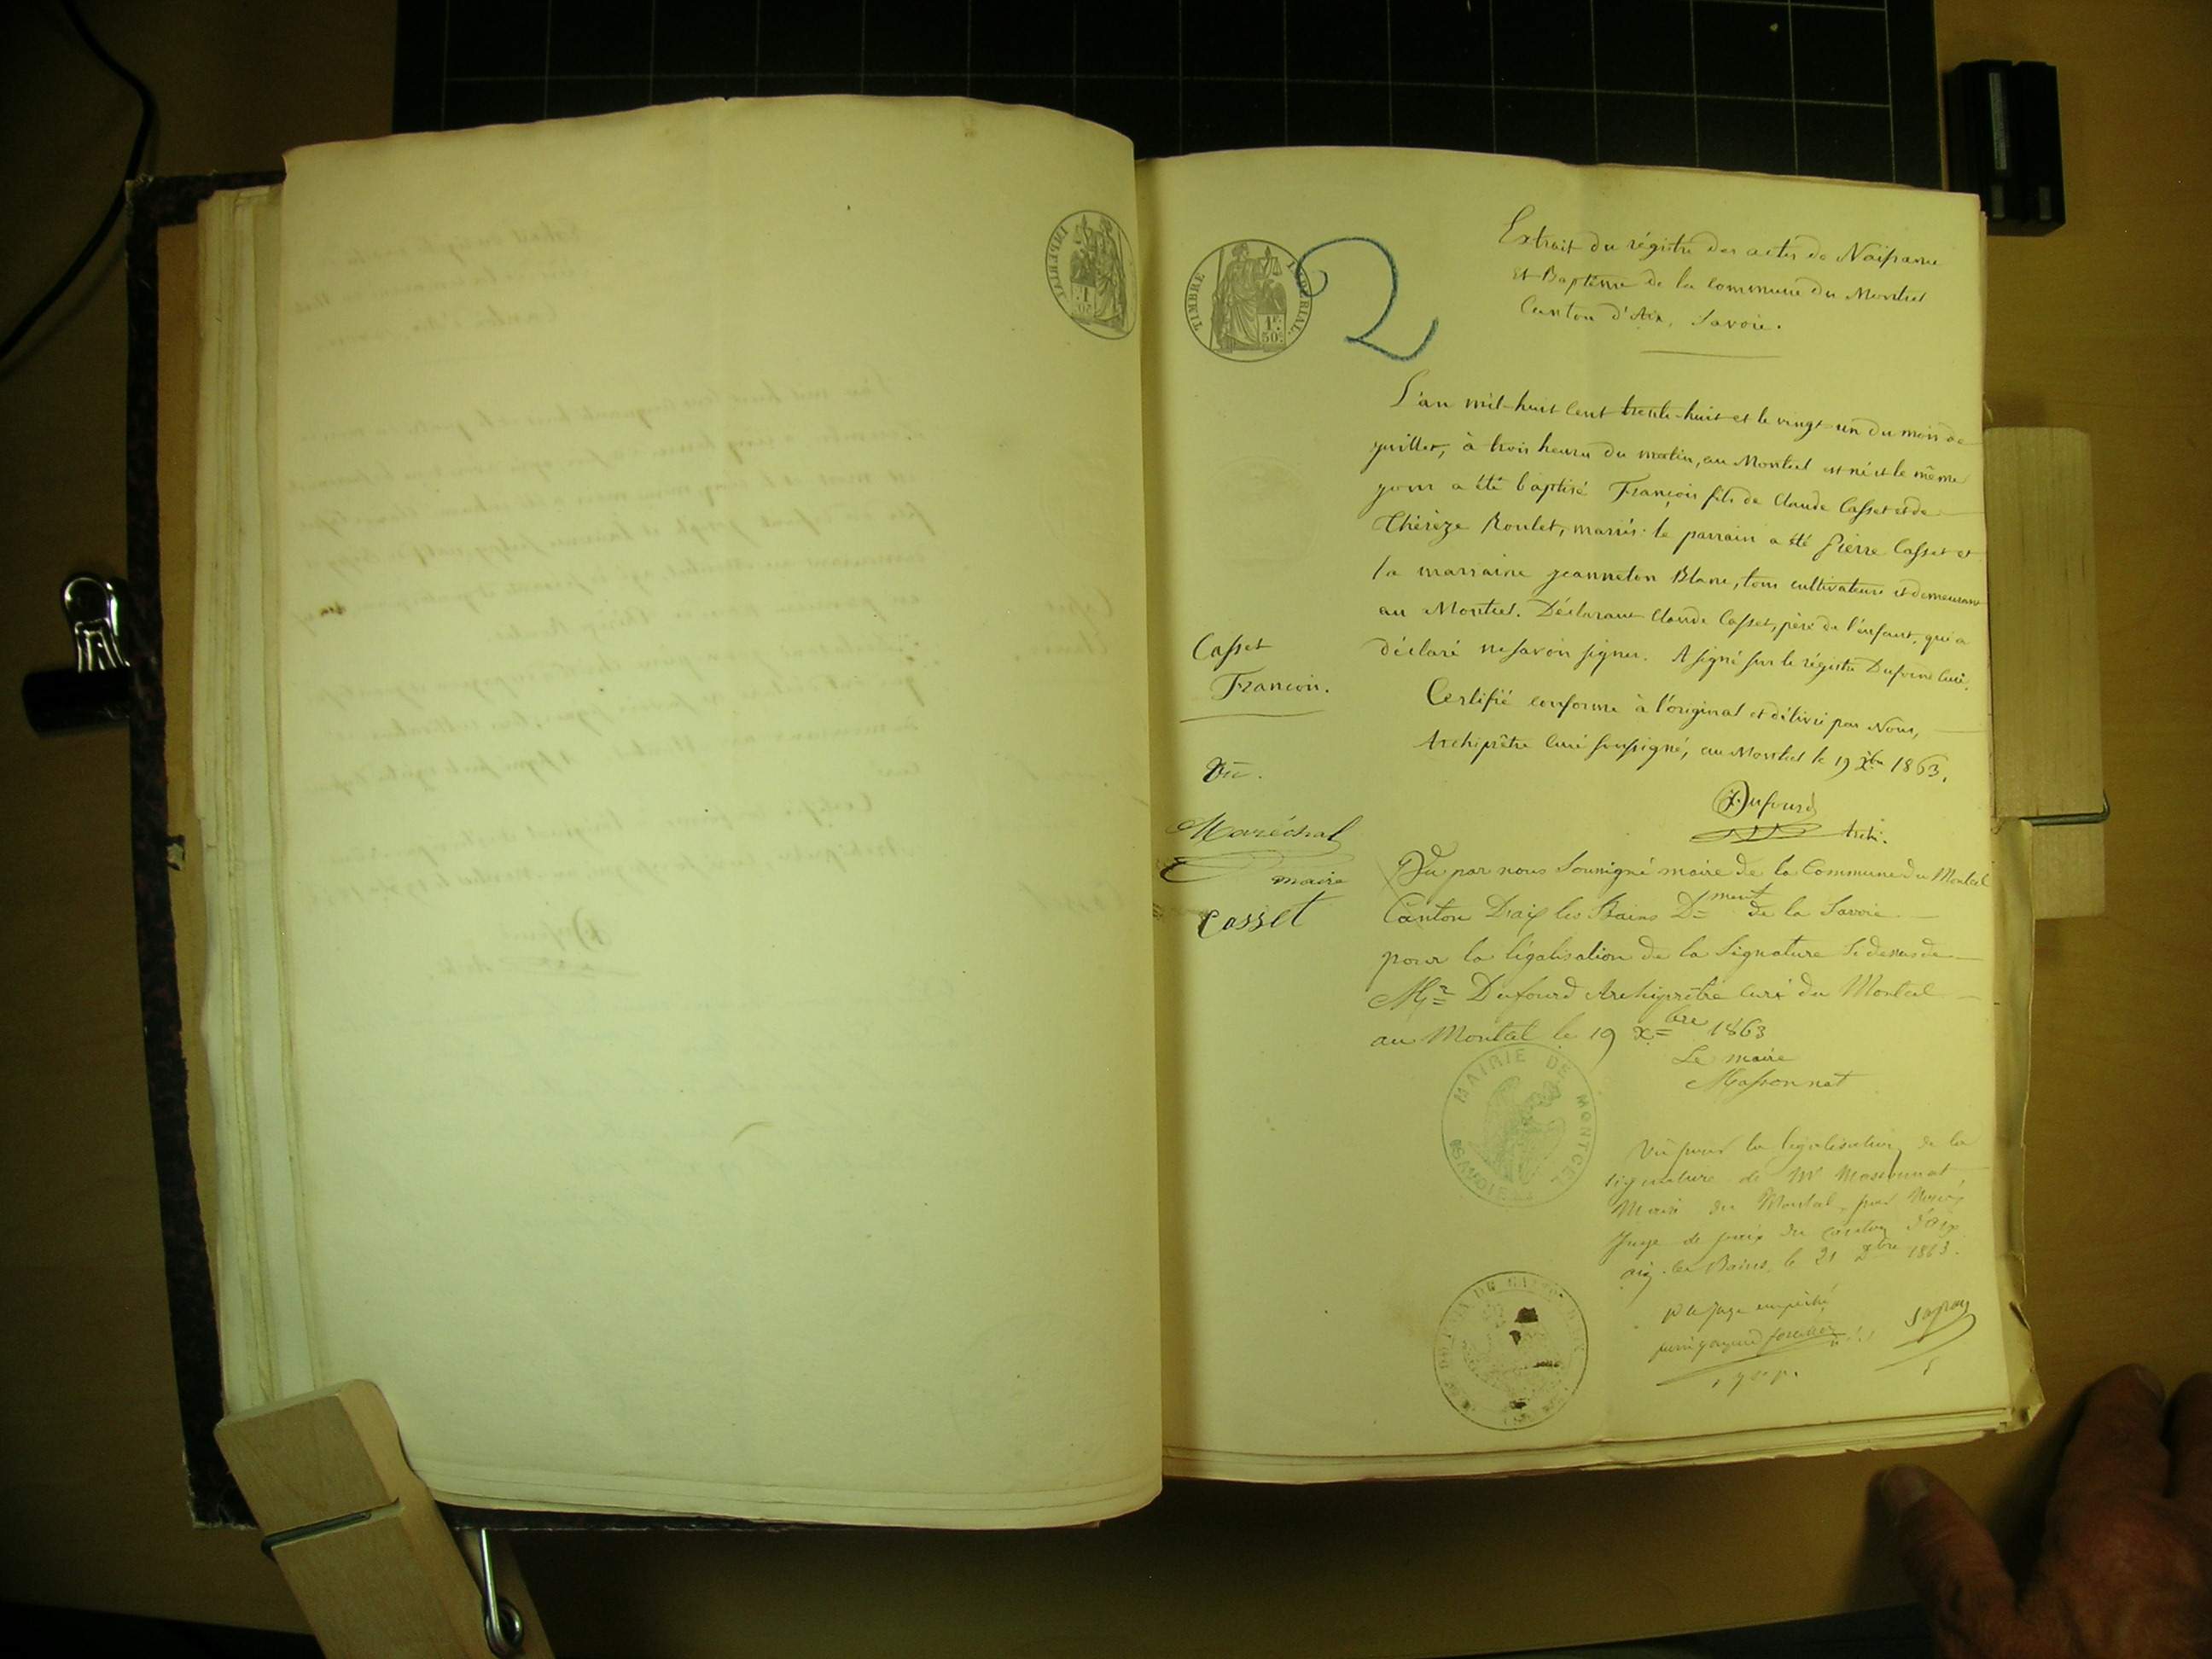 TIMBRE IMPERIAL
1F.
50c.
2
Extrait du régistre des actes de Naissance
et Baptême de la commune du Montcel
Canton d'Aix, Savoie.
L'an mil-huit cent trente-huit et le vingt-un du mois de
juillet, à trois heures du matin, au Montcel est né et le même
jour a été baptisé François fils de Claude Casset et de
Thérèze Roulet, mariés: le parrain a été Pierre Casset et
la marraine jeanneton Blanc, tous cultivateurs et demeurant
au Montcel. Déclarant Claude Casset, père de l'enfant, qui a
déclaré ne savoir signer. A signé sur le régistre Dufourd Curé.
Casset
François.
Certifié conforme à l'original et délivré par Nous,
Archiprêtre Curé soussigné, au Montcel le 19 Xbre 1863.
Dufourd
Arch.
Vu.
Maréchal
maire
Casset
Vu par nous Soussigné maire de la Commune du Montcel
Canton Daix les Bains Dment de la Savoie
pour la légalisation de la Signature Si dessus de
Mr Dufourd Archiprêtre curé du Montcel
au Montcel le 19 xbre 1863
Le maire
Massonnat
MAIRIE DE MONTCEL
(SAVOIE)
Vu pour la légalisation de la
signature de Mr Massonnat
Maire du Montcel, par Nous
Juge de paix du canton d'Aix
Aix-les-Bains, le 21 Xbre 1863.
pr le juge empêché